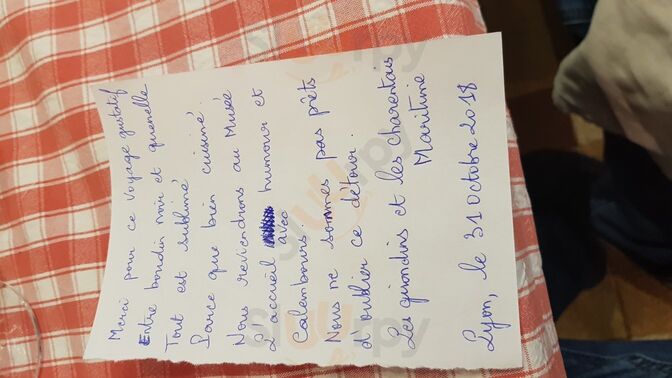 Merci pour ce voyage gustatif
Entre boudin noir et quenelle
Tout est sublimé
Parce que bien cuisiné.
Nous reviendrons au Musée
L'accueil avec humour et
Calembours
Nous ne sommes pas prêts
d'oublier ce détour.
Les girondins et les charentais
Maritime
Lyon, le 31 octobre 2018
Sluurpy